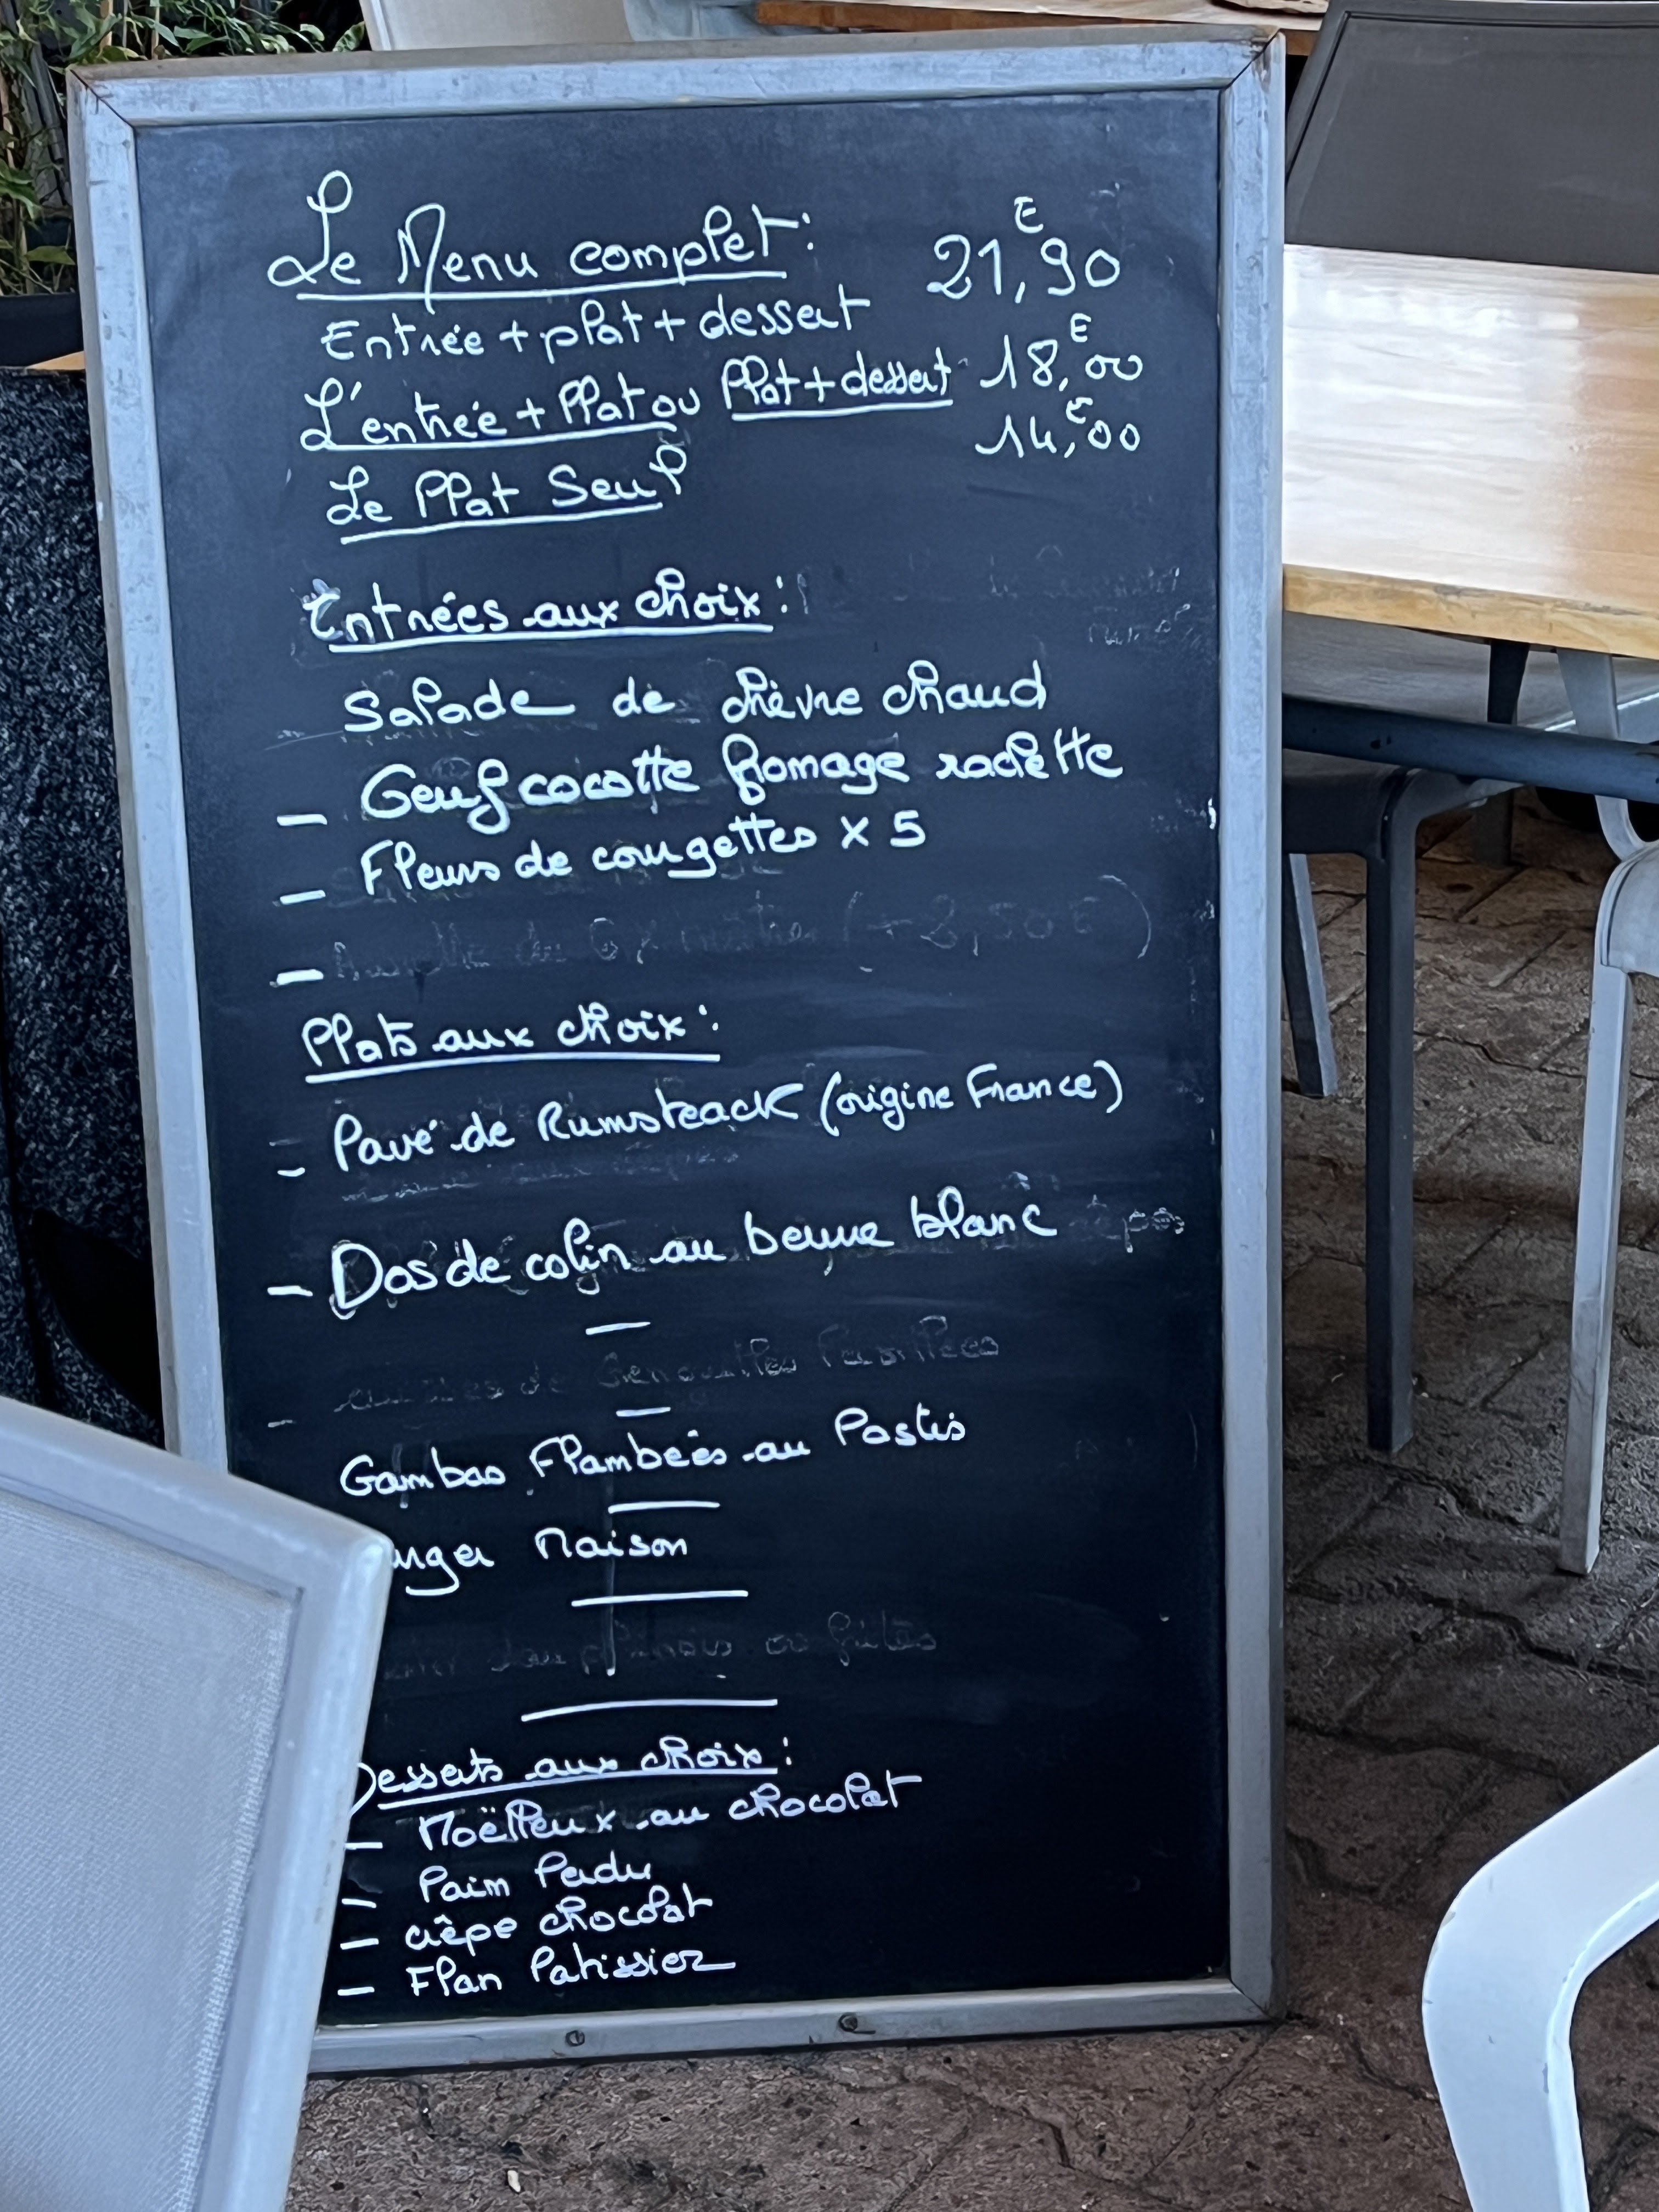 Le Menu complet: 21,€90
Entrée + plat + dessert
L'entrée + Plat ou Plat + dessert 18,€00
14,€00
Le Plat Seul
Entrées aux choix:
Salade de chèvre chaud
- Oeuf cocotte fromage raclette
- Fleurs de courgettes x 5
- (+2,50€)
Plats aux choix:
- Pavé de Rumsteack (origine France)
- Dos de colin au beurre blanc
de Grenouilles Persillées
Gambas Flambées au Pastis
urger Maison
Desserts aux choix:
- Moëlleux au chocolat
- Pain Perdu
- crêpe chocolat
- Flan Patissier